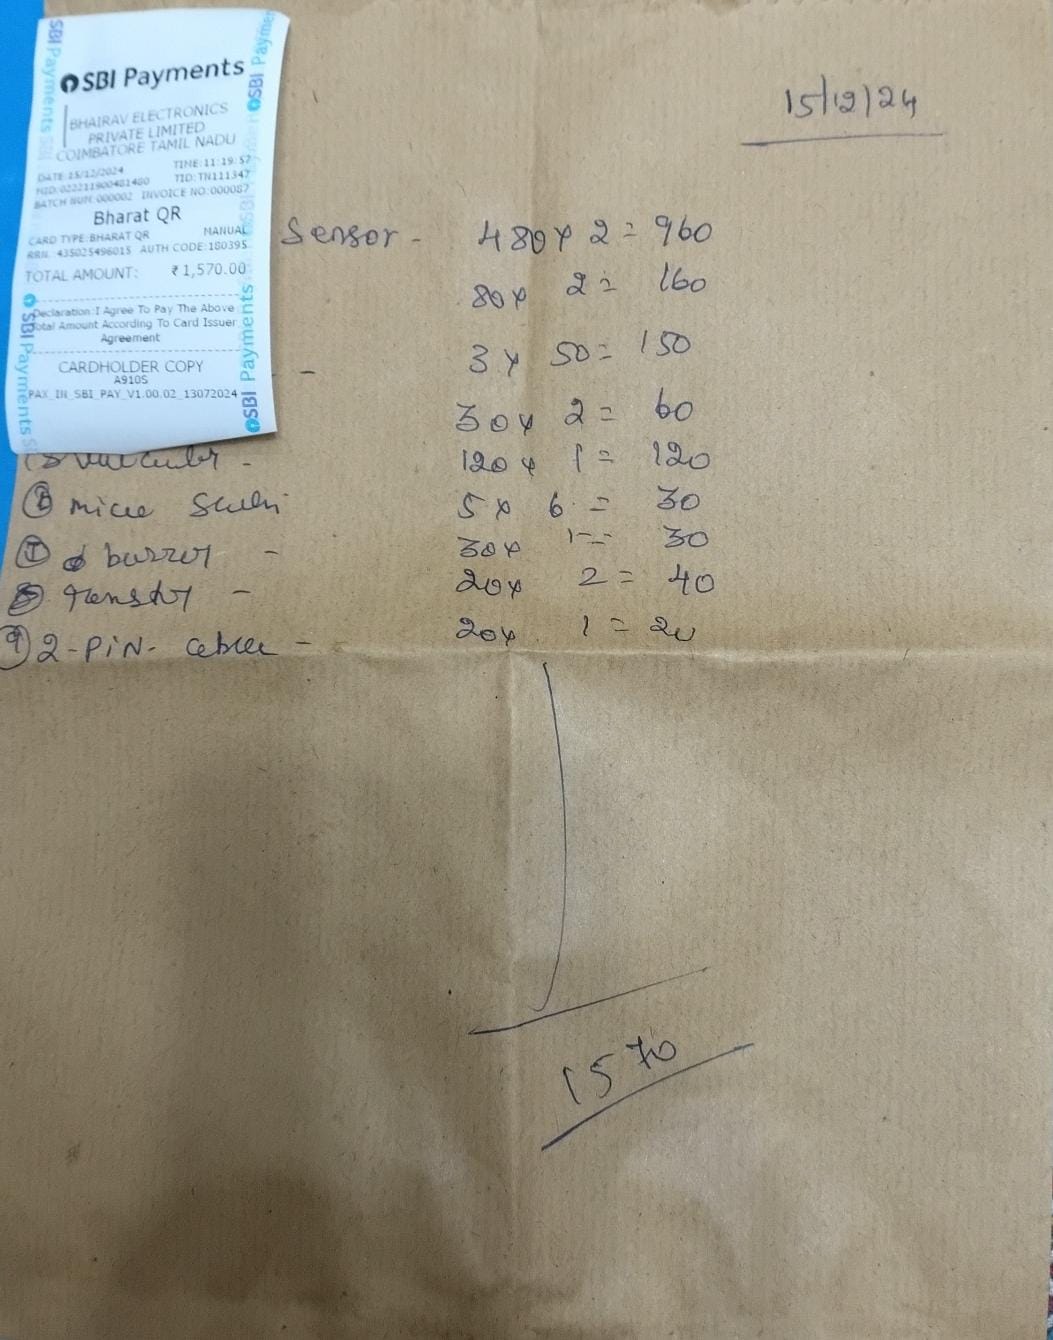 SBI Payments
BHAIRAV ELECTRONICS
PRIVATE LIMITED
COIMBATORE TAMIL NADU
DATE:15/12/2024 TIME:11:19:57
MID:022211900481480 TID:TN111347
BATCH NUM:000002 INVOICE NO:000087
Bharat QR
CARD TYPE:BHARAT QR MANUAL
RRN: 435025496015 AUTH CODE:180395
TOTAL AMOUNT: ₹ 1,570.00
Declaration:I Agree To Pay The Above
Total Amount According To Card Issuer
Agreement
CARDHOLDER COPY
A910S
PAX_IN_SBI_PAY_V1.00.02_13072024
SBI Payments
SBI Payments
SBI Payments
SBI Payments
15/12/24
Sensor - 480 x 2 = 960
80 x 2 = 160
- 3 x 50 = 150
30 x 2 = 60
- 120 x 1 = 120
5 x 6 = 30
⑦ buzzer - 30 x 1 = 30
- 20 x 2 = 40
⑨ 2-PiN- - 20 x 1 = 20
1570